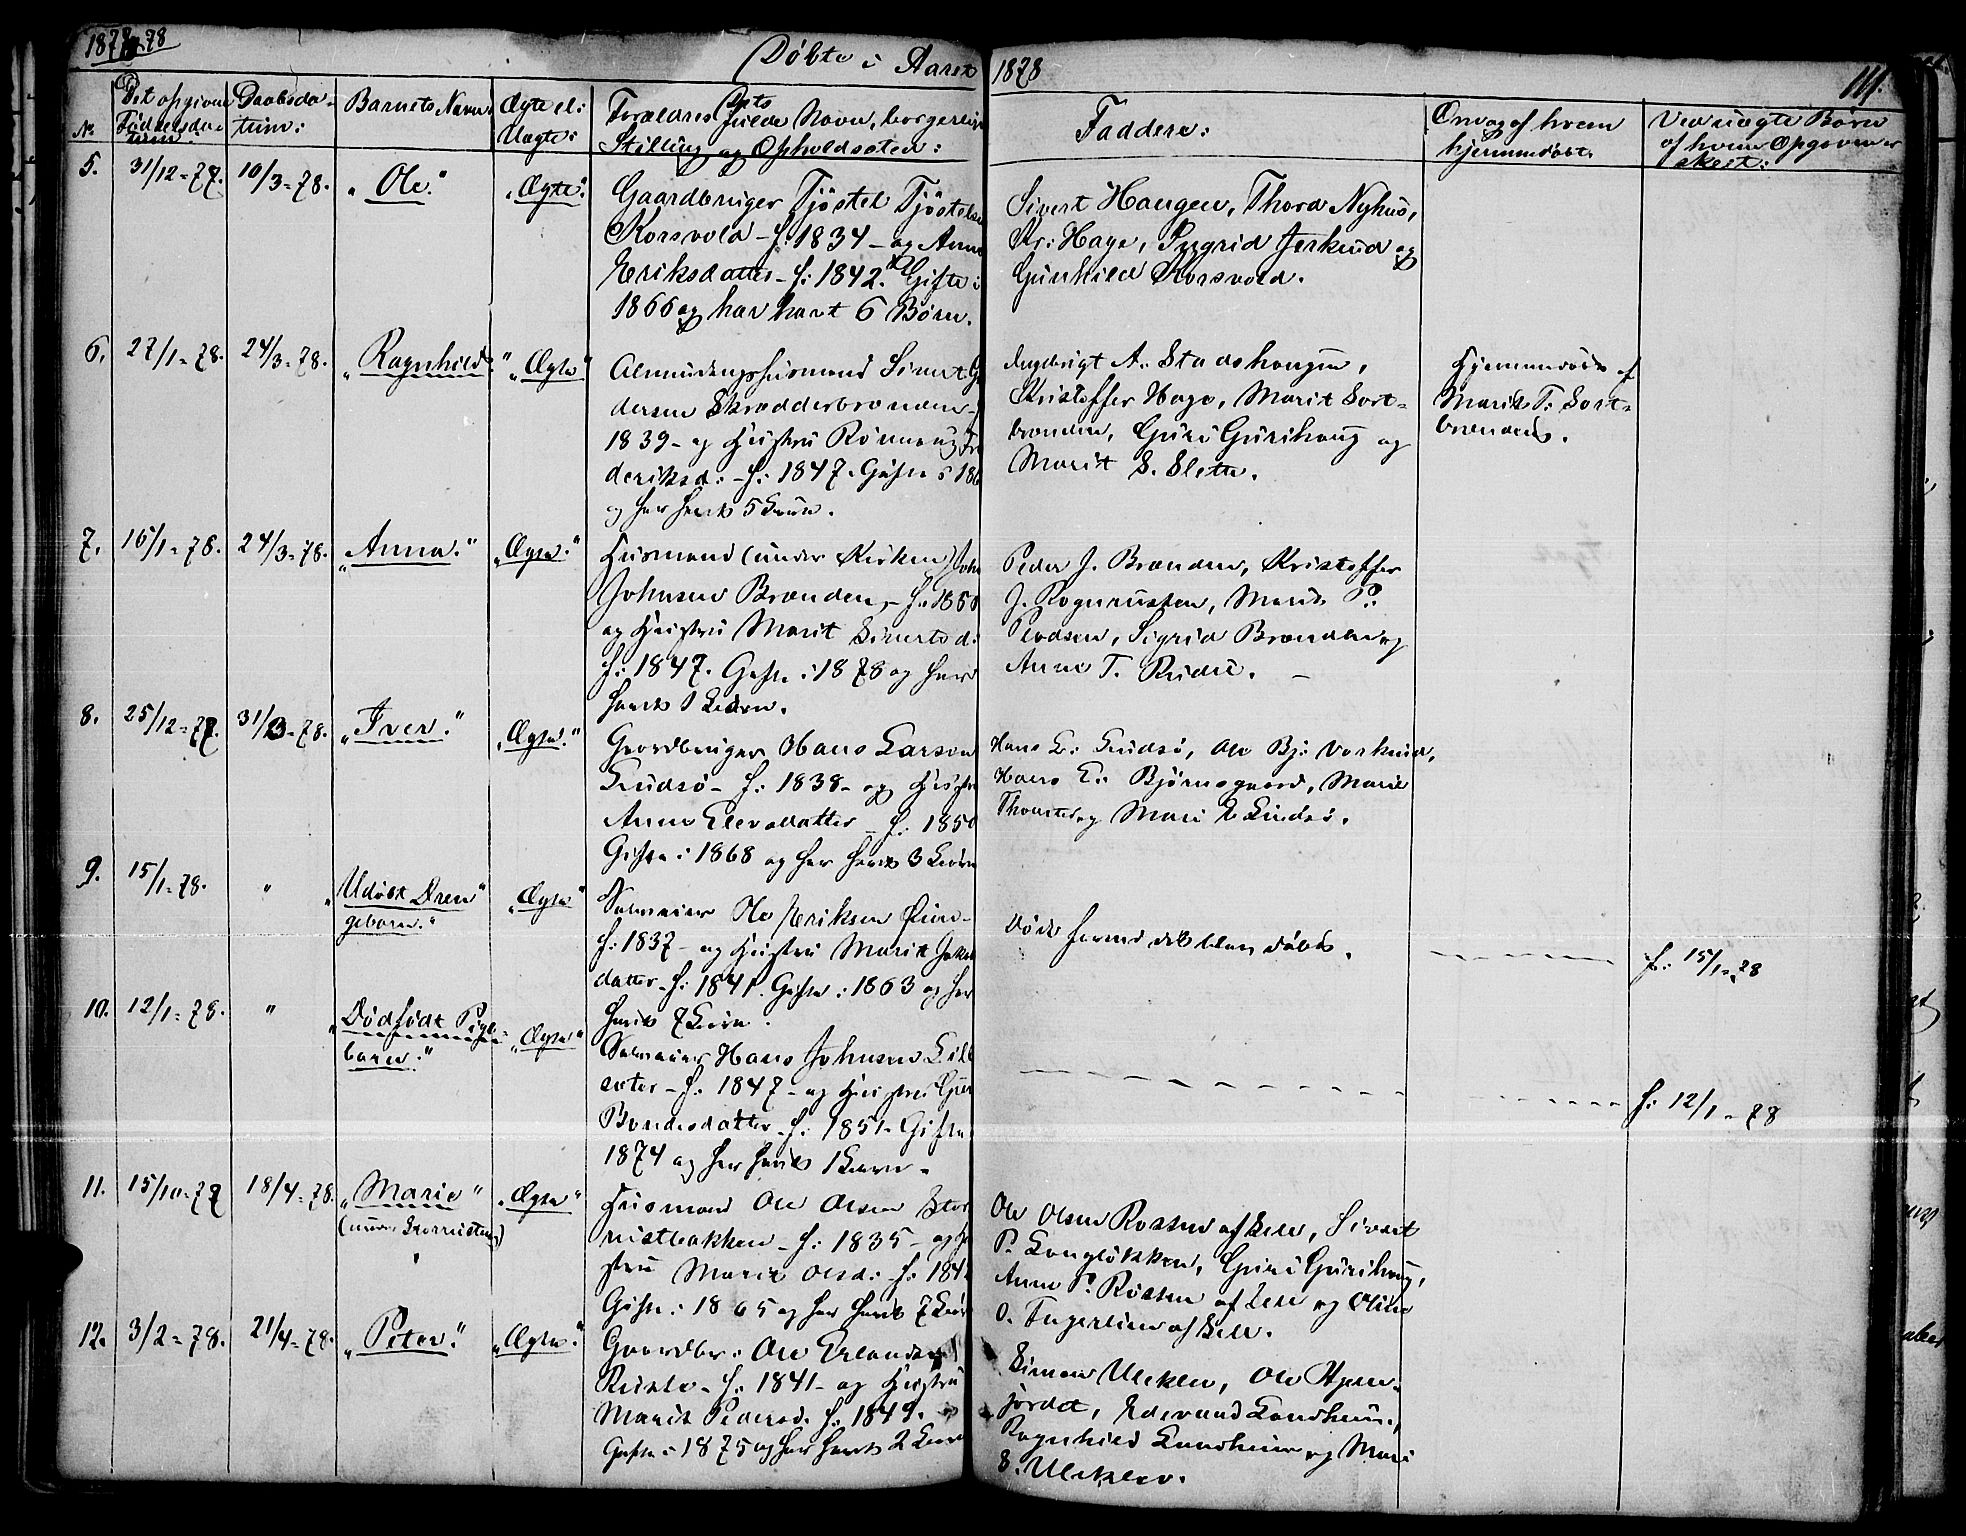 1878
Döbte i Aaret 1878
111.
No.
Det opgivne Födselsdatum.
Daabsdatum:
Barnets Navn.
Ægte el: Uægte:
Forældres fulde Navn, borgerlige
Stilling og Opholdssted:
Faddere:
Om og af hvem
hjemmedöbt.
Ved uægte Börn
af hvem Opgaven er
skeet:
5.
31/12-77.
10/3-78.
"Ole."
"Ægte."
Gaardbruger Tjöstel Tjöstelsen
Korsvold - f: 1834 - og Anne
Eriksdatter - f: 1842. Gifte i
1866 og har havt 6 Börn.
Sivert Haugen, Thord Nyhus,
Kr: Hage, Jerkind og
Gunhild Korsvold.
6.
27/1-78.
24/3-78.
"Ragnhild."
"Ægte"
Almindingshusmand Sivert
dersen Skrædderbrænden -
1839 - og Hustru Rönnaug
deriksd: - f: 1847. Gifte i
og har havt 5 Börn.
A. Stadshaugen,
Kristoffer Hage, Marit Sort-
brænden, Guri Gurihaug og
Marit S. Slette.
Hjemmedöbt af
Marit T. Sort-
brænden.
7.
16/1-78.
24/3-78.
"Anna."
"Ægte."
Husmand (under Kirken) John
Johnsen Brænden, - f: 1850
og Hustru Marit Sivertsd:
f: 1847. Gifte i 1878 og har
havt 1 Barn.
Peder J. Brænden, Kristoffer
J. Rognrusten, Marit P.
Sigrid Brænden og
Anne T. Rudi.
8.
25/12-77.
31/3-78.
"Iver."
"Ægte."
Gaardbruger Hans Larsen
- f: 1838 - og Hustru
Anne Elevsdatter - f: 1850
Gifte i 1868 og har havt 3 Börn
Hans E. Bjørnsgaard, Marie
og Mari
9.
15/1-78.
"
"Udöbt Dren
gebarn."
"Ægte"
Selveier Ole Eriksen
f: 1837 - og Hustru Marit
datter - f: 1841. Gifte i 1863 og har
havt 7 Börn.
Döde forend det blev döbt.
f: 15/1-78
10.
12/1-78.
"
"Dödfödt Pige-
barn."
"Ægte"
Selveier Hans Johnsen Lill
sæter - f: 1847 - og Hustru
Bondesdatter - f: 1851. Gifte
1874 og har havt 1 Barn.
f: 12/1-78
11.
15/10-77
18/4-78.
"Marie"
"Ægte"
Husmand Ole Olsen Stor
rustbakken - f: 1835 - og
stru Marie Olsd: f:
Gifte i 1865 og har havt 7 Börn
Ole Olsen Rosten af Sell, Sivert
P. Guri Gurihaug,
Anne P. Rosten af Sell og
O. af Sell.
12.
3/2-78.
21/4-78.
"Peter."
"Ægte."
Gaardbr: Ole Erlandsen
- f: 1841 - og Hustru
Marit Pedersd. f: 1849.
Gifte i 1875 og har havt 2 Börn
Simen Uleklev, Ole
jordet, Edevard Landheim,
Ragnhild Landheim og Mari
S. Uleklev.